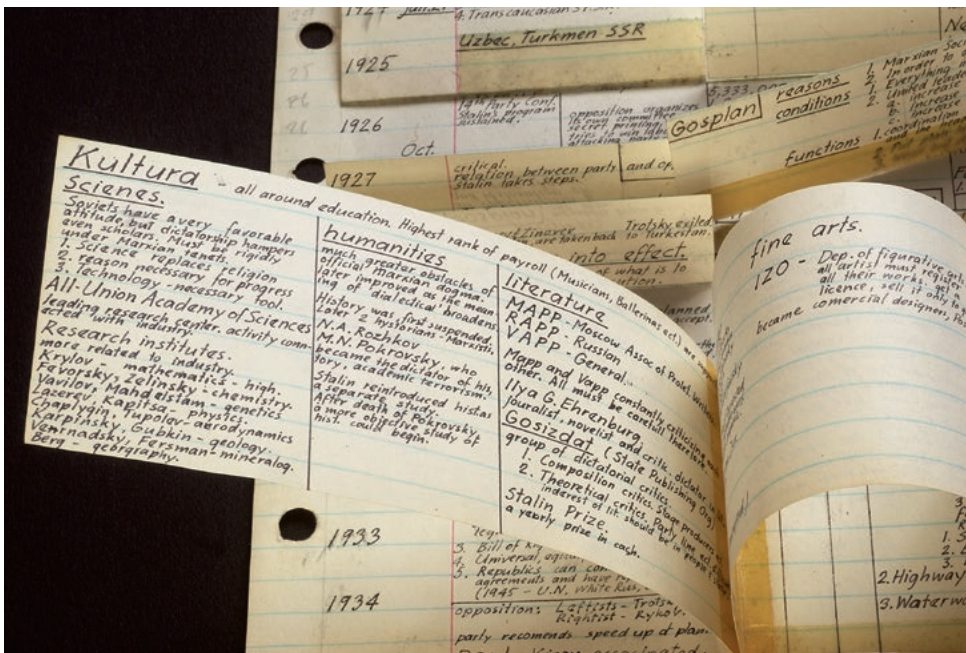 1927
4. Transcaucasian
Uzbec, Turkmen SSR
1925
1926
14th Party Conf.
Stalin's program
sustained.
opposition organizes
its own committee
secret printing,
tries to win
attacking
Oct.
1927
critical.
relation between party and
Stalin takes steps.
5,333,00
Gosplan
reasons
conditions
functions
1. Marxian
2. In order to
1. Everything
2. United
a. increase
b. Increase
1. coordination
Zinovev
are taken back to
Trotsky exiled
Turkestan.
into effect.
of what is to
Kultura - all around education. Highest rank of payroll (Musicians, Ballerinas ect.) are
Scienes.
Soviets have a very favorable
attitude, but dictatorship hampers
even scholars. Must be rigidly
under Marxian tenets.
1. Science replaces religion
2. reason necessary for progress
3. Technology - necessary tool.
All-Union Academy of Sciences
leading research center. activity conn-
ected with industry.
Research institutes.
more related to industry.
Krylov - mathematics - high.
Favorsky, Zelinsky - chemistry.
Vavilov, Mahdelstam - genetics
Lazerev, Kapitsa - physics
Chaplygin, Tupolev - aerodynamics
Karpinsky, Gubkin - geology.
Vernradsky, Fersman - mineralog.
Berg - geography.
humanities
much greater obstacles of
official marxian dogma.
later improved as the mean
ing of dialectic broadens
History was first suspended,
Later - hystorians - Marxisti.
N.A. Rozhkov
M.N. Pokrovsky, who
became the dictator of his
tory, academic terrorism.
Stalin reintroduced hist as
a separate study.
After death of Pokrovsky
a more objective study of
hist. could begin.
literature
MAPP - Moscow Assoc of Prolet. Writers
RAPP - Russian
VAPP - General.
Mapp and Vapp constantly criticising
other. All must be carefull therefore.
Ilya G. Ehrenburg
jouralist, novelist and critic. dictator
Gosizdat (State Publishing Org)
group of dictatorial critics.
1. Composition critics. Stage producers
2. Theoretical critics. Party line
interest of lit. should be in people's
Stalin Prize.
a yearly prize in cash.
fine arts.
IZO - Dep. of figurative
all artist must register
all their works. get a
licence, sell it only
became comercial designers,
1933
3. Bill of
4. Universal,
5. Republics can
agreements and have
(1945 - U.N. White Rus.
1934
opposition: Leftists - Trots
Rightist - Rykov
party recomends speed up of plan.
2. Highway
3. Waterw